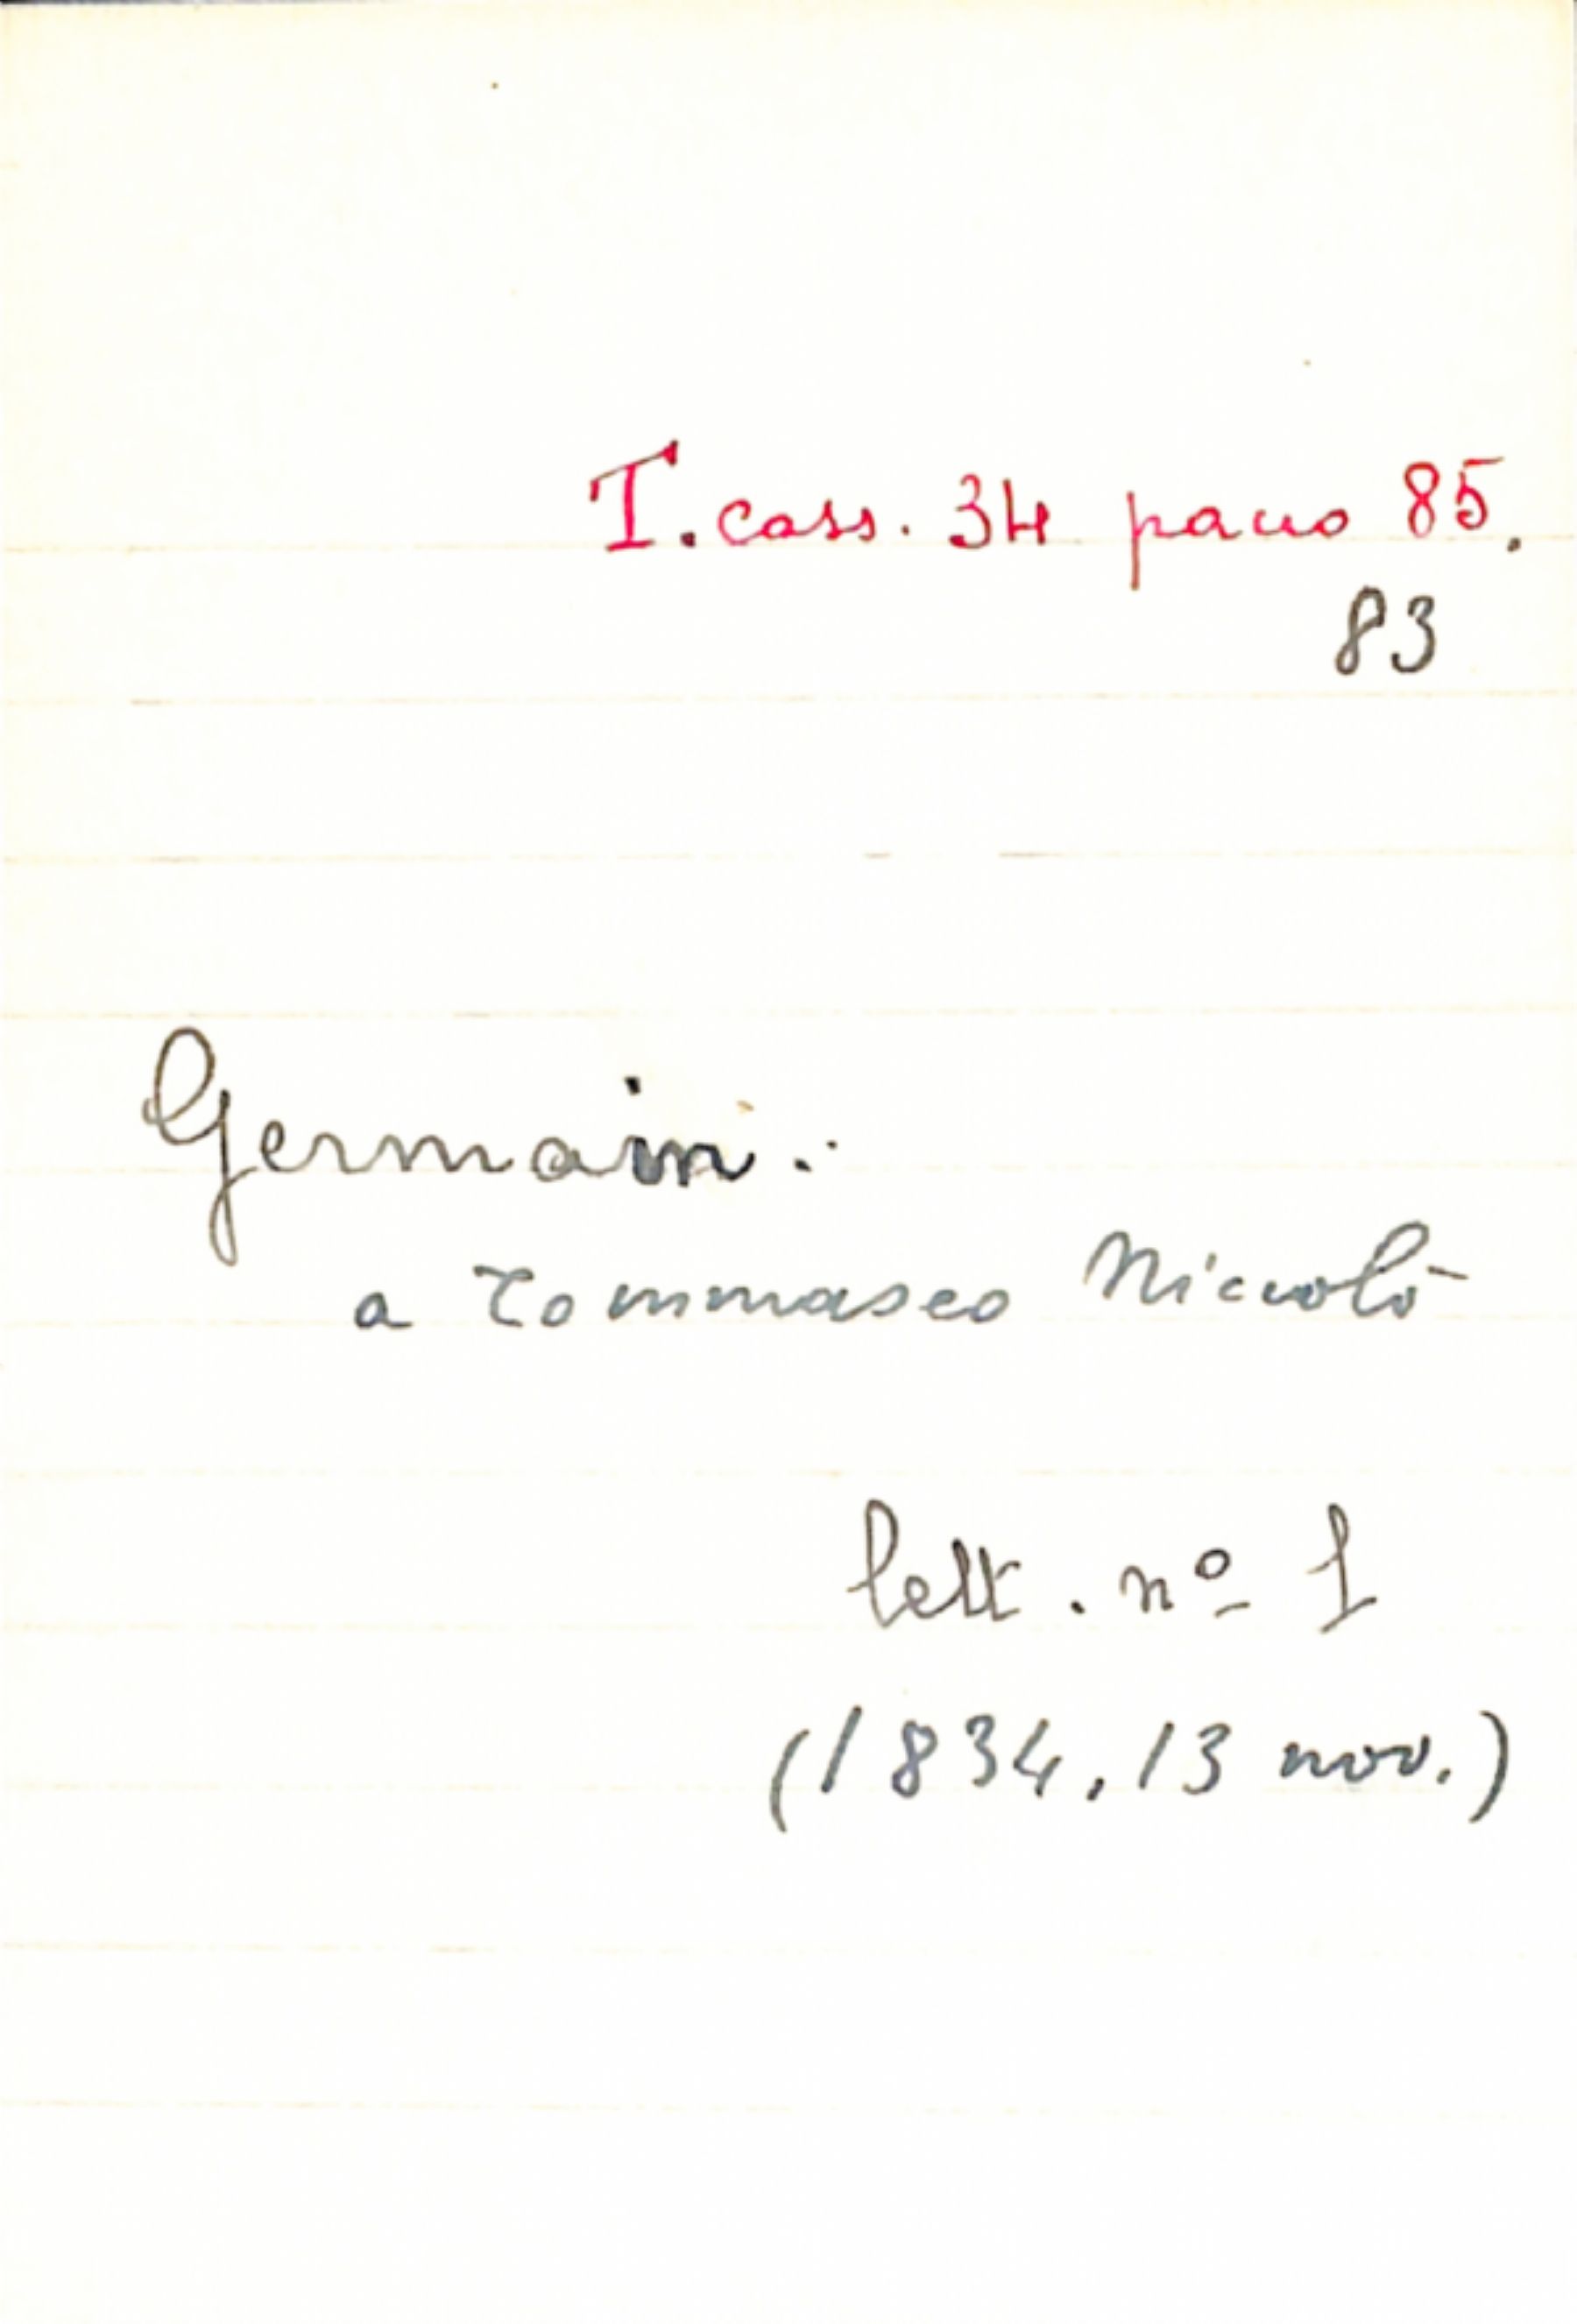 T. cass. 34 pacco 85.
83
Germain.
a Tommaseo Niccolò
lett. nº 1
(1834, 13 nov.)